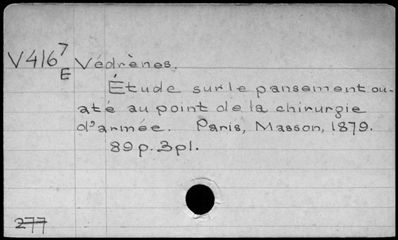 V416⁷ Védrènes.
E
Étude sur le pansement ou-
até au point de la chirurgie
d'armée. Paris, Masson, 1879.
89p. 3pl.
277